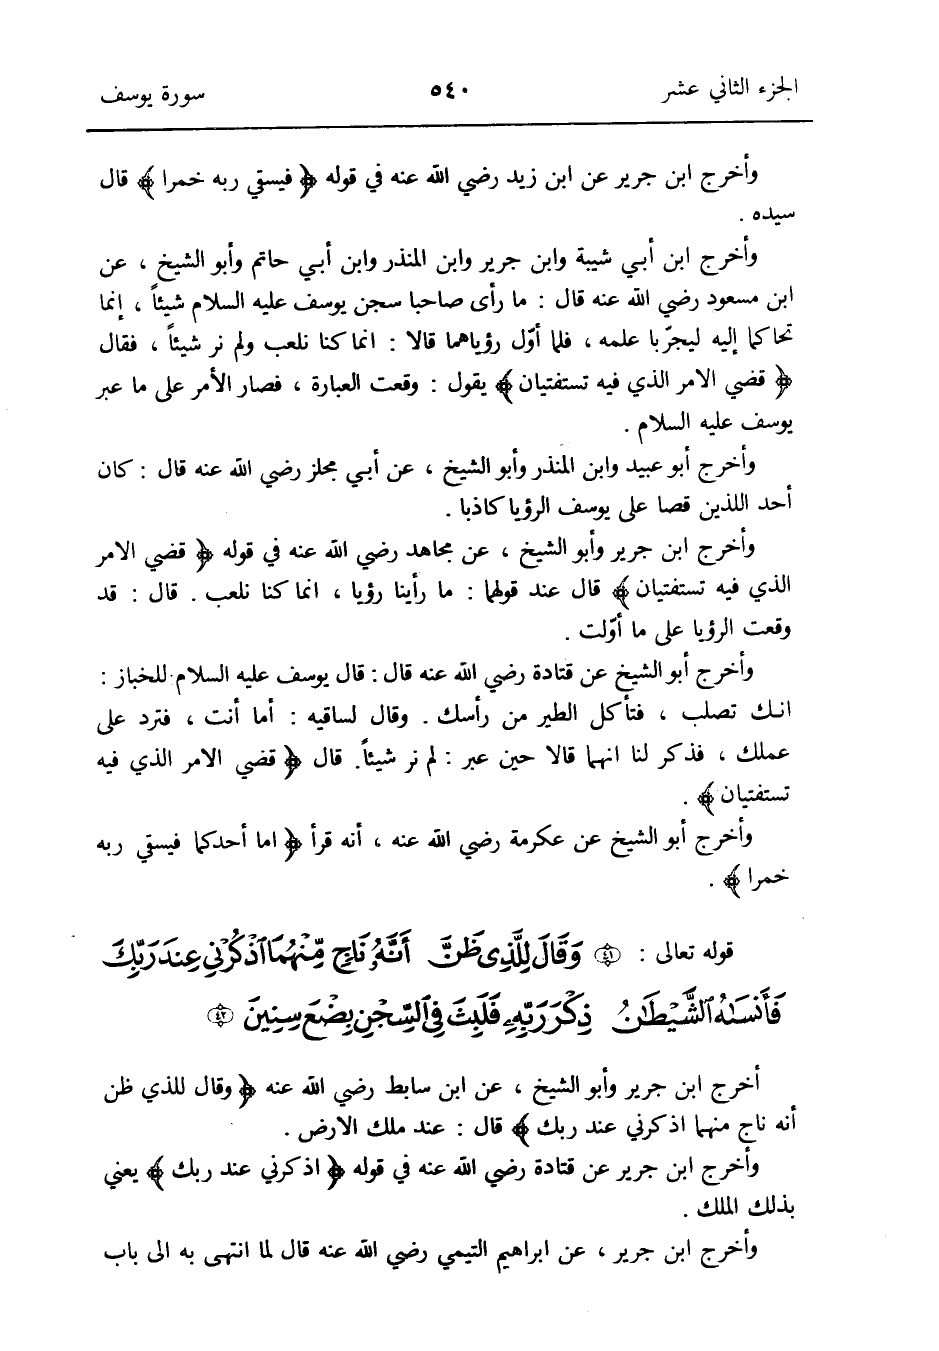 الجزء الثاني عشر ٥٤٠ سورة يوسف
وأخرج ابن جرير عن ابن زيد رضي الله عنه في قوله ﴿ فيسقي ربه خمرا ﴾ قال
سيده .
وأخرج ابن أبي شيبة وابن جرير وابن المنذر وابن أبي حاتم وأبو الشيخ ، عن
ابن مسعود رضي الله عنه قال : ما رأى صاحبا سجن يوسف عليه السلام شيئاً ، إنما
تحاكما إليه ليجرّبا علمه ، فلما أوّل رؤياهما قالا : انما كنا نلعب ولم نر شيئاً ، فقال
﴿ قضي الامر الذي فيه تستفتيان ﴾ يقول : وقعت العبارة ، فصار الأمر على ما عبر
يوسف عليه السلام .
وأخرج أبو عبيد وابن المنذر وأبو الشيخ ، عن أبي مجلز رضي الله عنه قال : كان
أحد اللذين قصا على يوسف الرؤيا كاذبا .
وأخرج ابن جرير وأبو الشيخ ، عن مجاهد رضي الله عنه في قوله ﴿ قضي الامر
الذي فيه تستفتيان ﴾ قال عند قولهما : ما رأينا رؤيا ، انما كنا نلعب . قال : قد
وقعت الرؤيا على ما أوّلت .
وأخرج أبو الشيخ عن قتادة رضي الله عنه قال : قال يوسف عليه السلام للخباز :
انك تصلب ، فتأكل الطير من رأسك . وقال لساقيه : أما أنت ، فترد على
عملك ، فذكر لنا انهما قالا حين عبر : لم نر شيئاً . قال ﴿ قضي الامر الذي فيه
تستفتيان ﴾ .
وأخرج أبو الشيخ عن عكرمة رضي الله عنه ، أنه قرأ ﴿ اما أحدكما فيسقي ربه
خمرا ﴾ .
قوله تعالى : ٤١ وَقَالَ لِلَّذِى ظَنَّ أَنَّهُۥ نَاجٍ مِّنْهُمَا ٱذْكُرْنِى عِندَ رَبِّكَ
فَأَنسَىٰهُ ٱلشَّيْطَٰنُ ذِكْرَ رَبِّهِۦ فَلَبِثَ فِى ٱلسِّجْنِ بِضْعَ سِنِينَ ٤٢
أخرج ابن جرير وأبو الشيخ ، عن ابن سابط رضي الله عنه ﴿ وقال للذي ظن
أنه ناج منهما اذكرني عند ربك ﴾ قال : عند ملك الارض .
وأخرج ابن جرير عن قتادة رضي الله عنه في قوله ﴿ اذكرني عند ربك ﴾ يعني
بذلك الملك .
وأخرج ابن جرير ، عن ابراهيم التيمي رضي الله عنه قال لما انتهى به الى باب